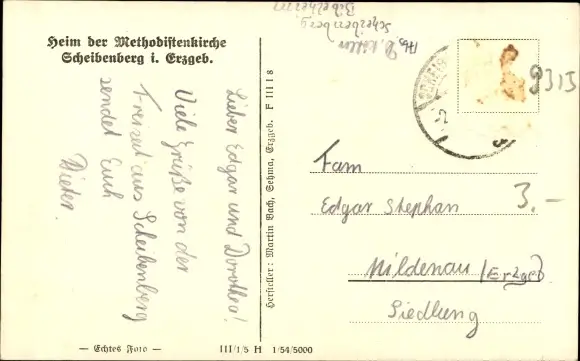 Heim der Methodistenkirche
Scheibenberg i. Erzgeb.
Lieber Edgar und Dorothea!
Viele Grüße von der
Freizeit aus Scheibenberg
sendet Euch
Dieter.
Hersteller: Martin Bach, Sehma, Erzgeb. F III 18
— Echtes Foto —
III/1/5 H 1/54/5000
Abs.
Scheibenberg
9315
Fam
Edgar Stephan
3.-
Mildenau (Erzgeb
Siedlung